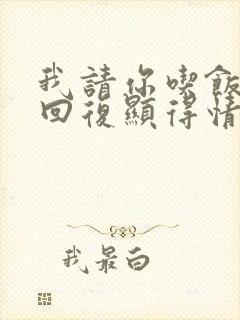 我請你喫飯
回復顯得情
我最白